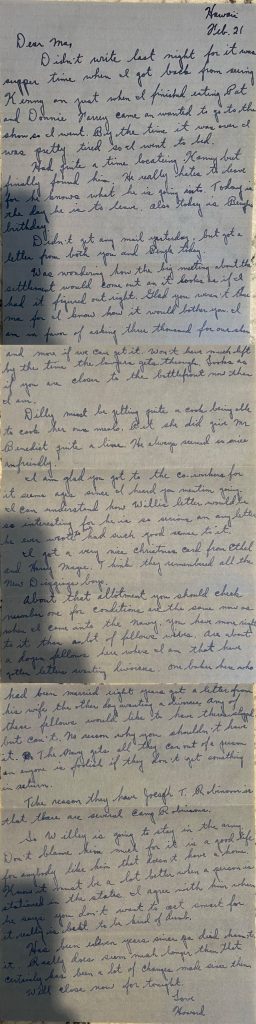 Hawaii
Feb. 21
Dear Ma,
Didn't write last night for it was
supper time when I got back from seeing
Kenny an just when I finished eating Pat
and Donnie came an wanted to go to the
show so I went. By the time it was over I
was pretty tired so I went to bed.
Had quite a time locating Kenny but
finally found him. He really hates to leave
for he knows what he is going into. Today is
the day he is to leave. Also today is
birthday.
Didn't get any mail yesterday, but got a
letter from both you and today.
Was wondering how the big meeting about that
settlement would come out an it looks as if I
had it figured out right. Glad you weren't there
ma for I know how it would bother you. I
am in favor of asking three thousand for our share
and more if we can get it. Won't have much left
by the time the lawyers gets through. Looks as
if you are closer to the battlefront now than
I am.
Dilly must be getting quite a cook being able
to cook her own meals. Bet she did give Mr
Benedict quite a line. He always seemed so
unfriendly.
I am glad you got to the co-workers for
it seems ages since I heard you mention going.
I can understand how Willies letter would be
so interesting for he is so serious an any letter
he ever wrote had such good sense to it.
I got a very nice christmas card from Ethel
and Magee. I think they remembered all the
boys.
About that allotment you should check
number one for conditions are the same now as
when I came into the Navy. You have more right
to it than a lot of fellows wives. Are about
a dozen fellows here where I am that have
gotten letters wanting divorces. One baker here who
had been married eight years got a letter from
his wife the other day wanting a divorce. Any of
these fellows would like to have theirs stopped
but can't. No reason why you shouldn't have
it. The Navy gets all they can out of a person
an anyone is foolish if they don't get something
in return.
The reason they have Joseph T. Robinson is
that there are several Camp Robinsons.
So Willey is going to stay in the army.
Don't blame him much for it is a good life
for anybody like him that doesn't have a home.
Know it must be a lot better when a person is
stationed in the states. I agree with him when
he says you don't want to act smart for
it really is best to be kind of dumb.
Has been eleven years since pa died hasn't
it. Really does seem much longer than that
certainly has been a lot of changes made since then.
Will close now for tonight.
Love
Howard